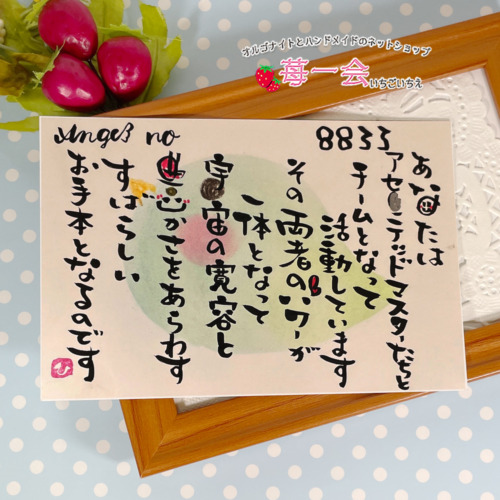 オルゴナイトとハンドメイドのネットショップ
苺一会
いちごいちえ
Angel no
8833
あなたは
アセンデッドマスターたちと
チームとなって
活動しています
その両者のパワーが
一体となって
宇宙の寛容と
豊かさをあらわす
すばらしい
お手本となるのです